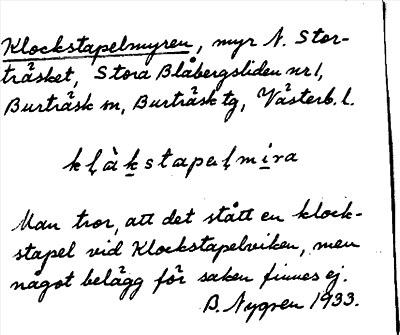 Klockstapelmyren, myr N. Stor-
träsket, Stora Blåbergsliden nr 1,
Burträsk sn, Burträsk tg, Västerb. l.
kḷàkstapaḷmira
Man tror, att det stått en klock-
stapel vid Klockstapelviken, men
något belägg för saken finnes ej.
B. Nygren 1933.